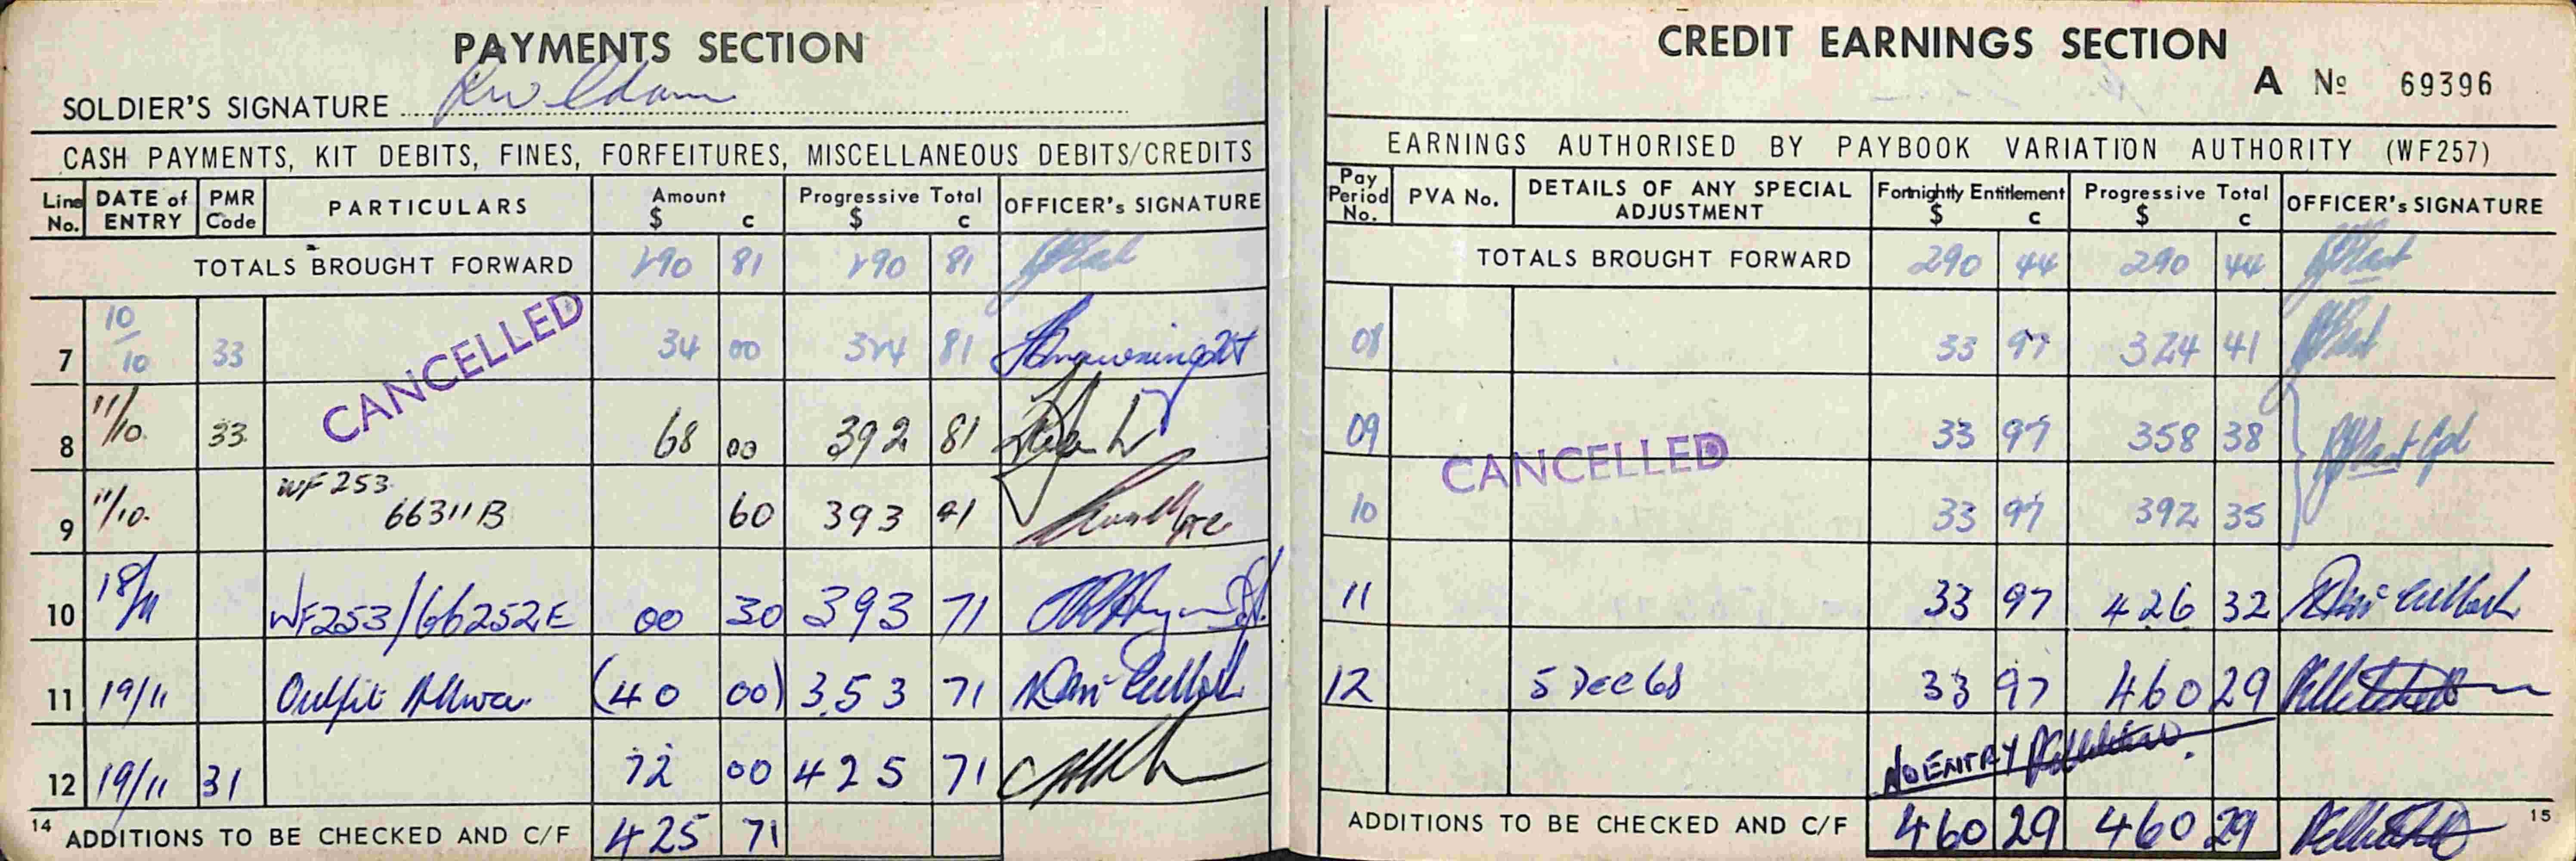 PAYMENTS SECTION
SOLDIER'S SIGNATURE
CASH PAYMENTS, KIT DEBITS, FINES, FORFEITURES, MISCELLANEOUS DEBITS/CREDITS
Line No. DATE of ENTRY PMR Code PARTICULARS Amount $ c Progressive Total $ c OFFICER's SIGNATURE
TOTALS BROUGHT FORWARD 290 81 290 81
7 10/10 33 34 00 324 81
CANCELLED
8 11/10. 33 68 00 392 81
9 11/10. WF 253 66311 B 60 393 41
10 18/11 WF253/66252E 00 30 393 71
11 19/11 Outfit Allwce. (40 00) 353 71
12 19/11 31 72 00 425 71
14 ADDITIONS TO BE CHECKED AND C/F 425 71
CREDIT EARNINGS SECTION
A № 69396
EARNINGS AUTHORISED BY PAYBOOK VARIATION AUTHORITY (WF257)
Pay Period No. PVA No. DETAILS OF ANY SPECIAL ADJUSTMENT Fortnightly Entitlement $ c Progressive Total $ c OFFICER's SIGNATURE
TOTALS BROUGHT FORWARD 290 44 290 44
08 33 97 324 41
09 33 97 358 38
CANCELLED
10 33 97 392 35
11 33 97 426 32
12 5 Dec 68 33 97 460 29
NO ENTRY
ADDITIONS TO BE CHECKED AND C/F 460 29 460 29
15